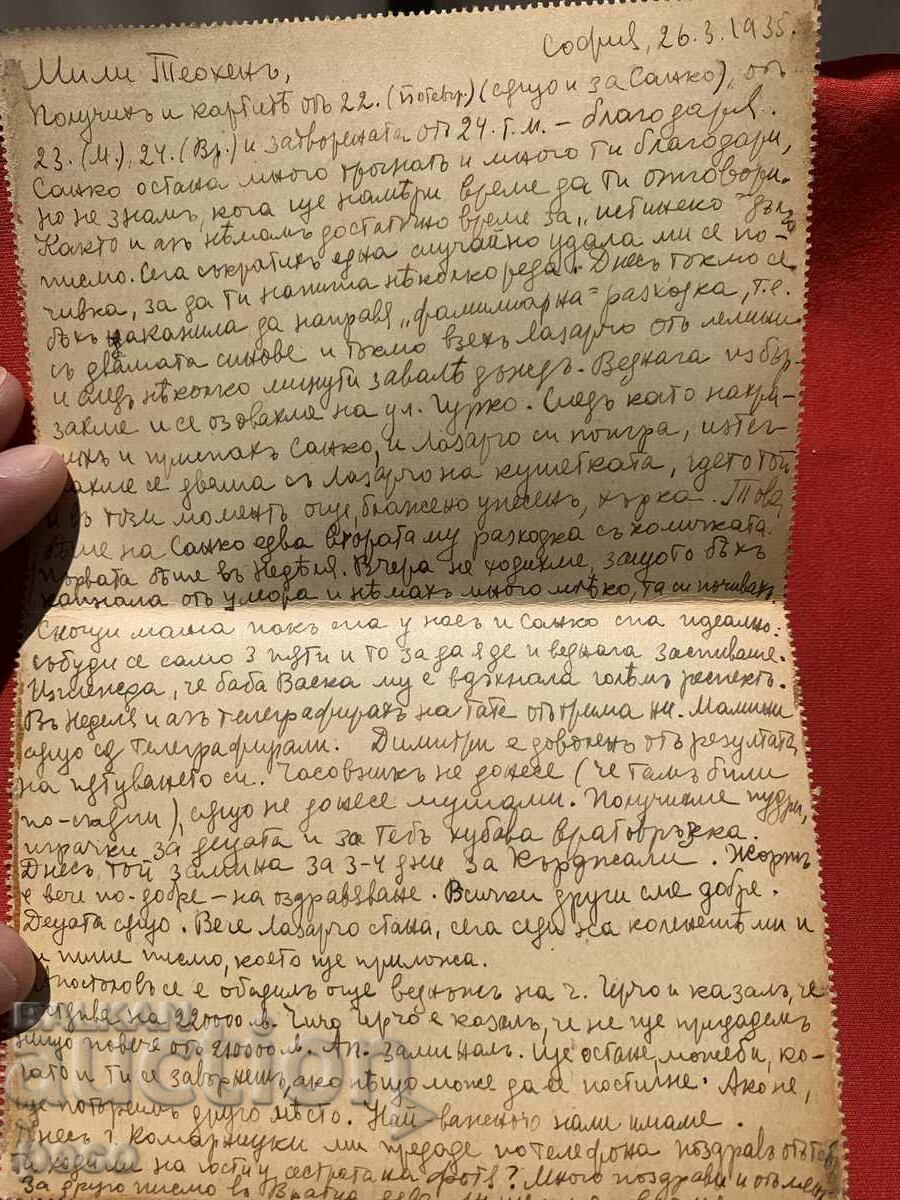 София, 26.3.1935.
Мили Теохенъ,
Получихъ и картитѣ отъ 22. (също и за Сашко), отъ
23. (М.), 24. (Вр.) и затворената отъ 24. т.м. – благодаря.
Сашко остана много трогнатъ и много ти благодари,
но не знамъ, кога ще намѣри време да ти отговори.
Както и азъ нѣмамъ достатъчно време за „истинско" дълго
писмо. Сега съкратихъ една случайно удала ми се по-
чивка, за да ти напиша нѣколко реда. Днесъ тъкмо се
бѣхъ наканила да направя „фамилиарна" разходка, т.е.
съ двамата синове и тъкмо взехъ Лазарчо отъ
и следъ нѣколко минути заваля дъждъ. Веднага избър-
захме и се озовахме на ул. Гурко. Следъ като нахра-
нихъ и Сашко, и Лазарчо си поигра, изтег-
нахме се двама съ Лазарчо на кушетката, гдето той
и въ този моментъ още, блажено унесенъ, хърка. Това
бѣше на Сашко едва втората му разходка съ количката.
Първата бѣше въ неделя. Вчера не ходихме, защото бѣхъ
капнала отъ умора и нѣмахъ много млѣко, та си почивахъ.
Снощи мама пакъ спа у насъ и Сашко спа идеално:
събуди се само 3 пѫти и то за да яде и веднага заспиваше.
Изглежда, че баба Васка му е вдъхнала голѣмъ респектъ.
Въ неделя и азъ телеграфирахъ на тате отъ трима ни. Мамини
също сѫ телеграфирали. Димитри е доволенъ отъ резултата
на пѫтуването си. Часовникъ не донесе (че тамъ били
по-скѫпи), също не донесе мушами. Получихме пудри,
играчки за децата и за тебъ хубава вратовръзка.
Днесъ той замина за 3-4 дни за Кърджали. Жоржъ
е вече по-добре – на оздравяване. Всички други сме добре.
Децата също. Вече Лазарчо стана, сега седи на коленетѣ ми и
ти пише писмо, което ще приложа.
Апостоловъ се е обадилъ още веднъжъ на ч. Гичо и казалъ, че
на 220000 л. Чичо Гичо е казалъ, че не ще придадемъ
нищо повече отъ 210000 л. Ап. заминалъ. Ще остане, може би, ко-
гато и ти се завърнешъ, ако нѣщо може да се постигне. Ако не,
ще потърсимъ друго мѣсто. Най-важното нали имаме.
Днесъ г. Комарницки ми предаде по телефона поздравъ отъ тебъ
Ти ходи ли на гости у сестрата на Фотъ? Много поздрави и отъ мен
За друго писмо въ Вратца
BALKAN
auction